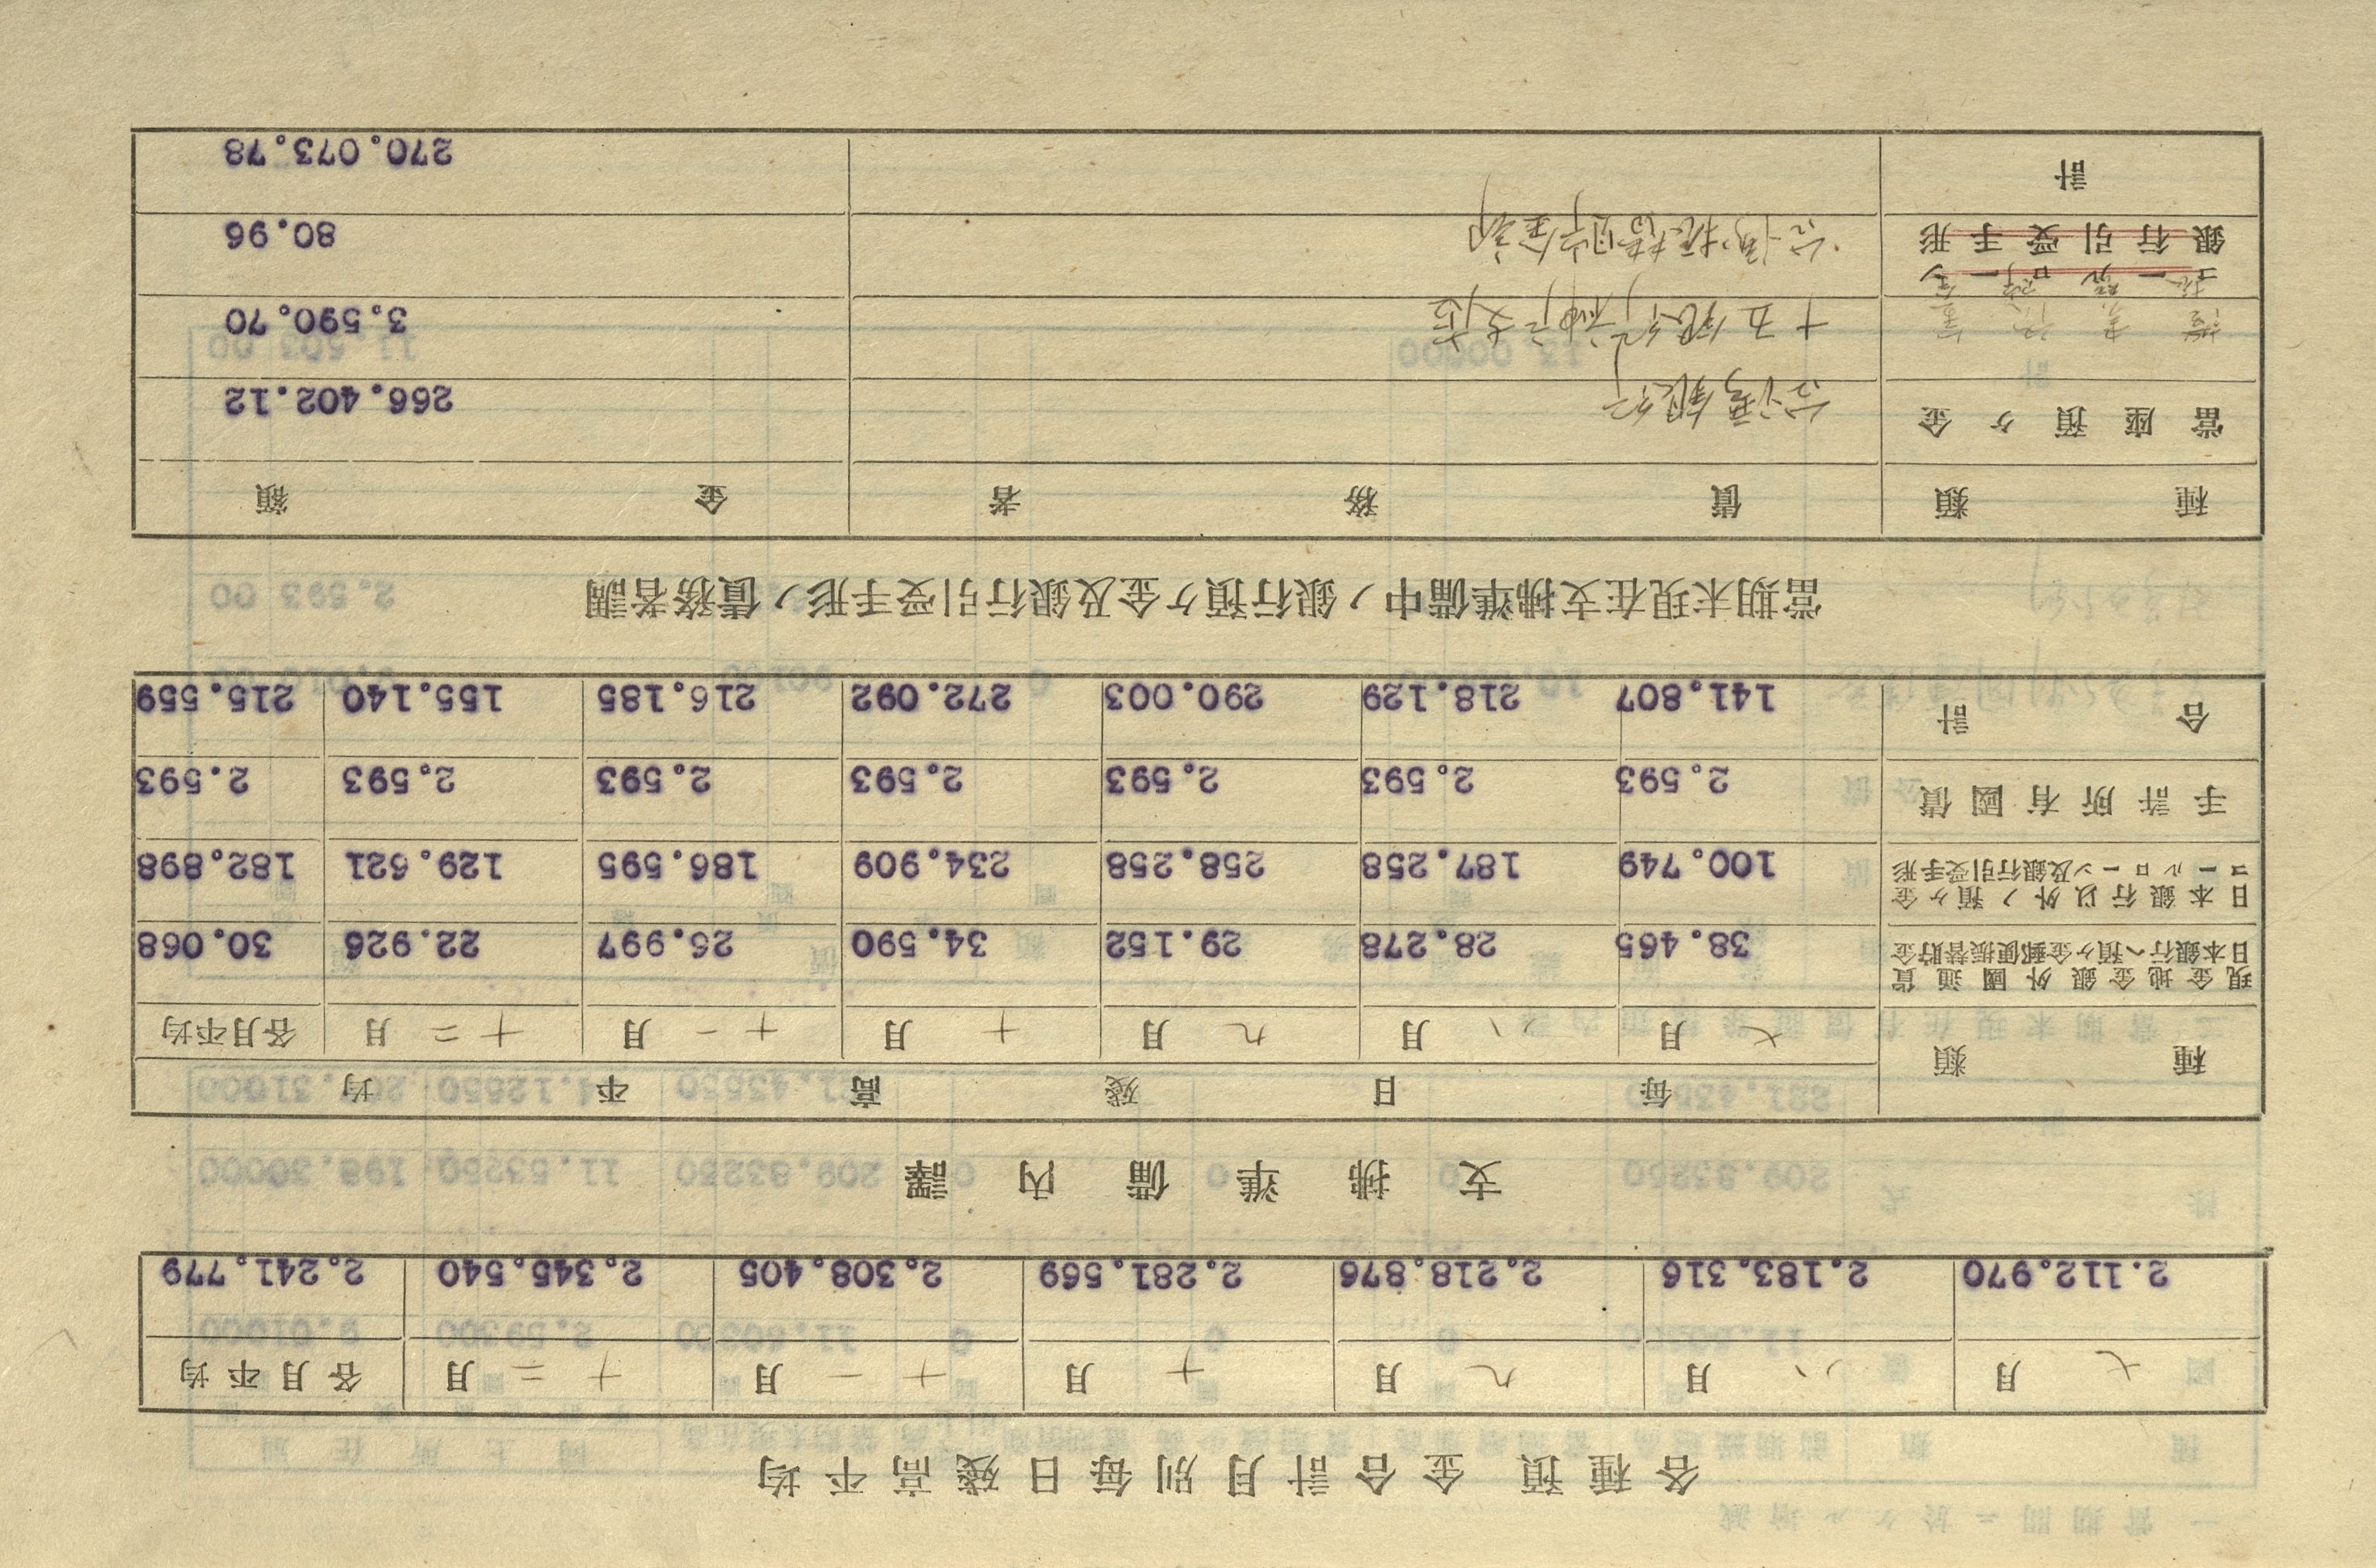 各種預金合計月別毎日殘高平均
七月 八月 九月 十月 十一月 十二月 各月平均
2.112.970 2.183.316 2.218.876 2.281.569 2.308.405 2.345.540 2.241.779
支拂準備内譯
種類 毎日殘高平均
七月 八月 九月 十月 十一月 十二月 各月平均
現金地金銀外國通貨
日本銀行ヘ預ケ金郵便振替貯金 38.465 28.278 29.152 34.590 26.997 22.926 30.068
日本銀行以外ノ預ケ金
コールローン及銀行引受手形 100.749 187.258 258.258 234.909 186.595 129.621 182.898
手許所有國債 2.593 2.593 2.593 2.593 2.593 2.593 2.593
合計 141.807 218.129 290.003 272.092 216.185 155.140 215.559
當期末現在支拂準備中ノ銀行預ケ金及銀行引受手形ノ債務者調
種類 債務者 金額
當座預ケ金 台湾銀行 266.402.12
十五銀行神戸支店 3.590.70
コールローン
銀行引受手形 80.96
計 270.073.78